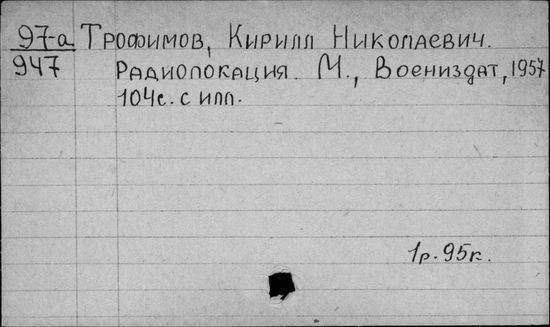 97-а Трофимов, Кирилл Николаевич.
947 Радиолокация. М., Воениздат, 1957
104с. с илл.
1р. 95к.